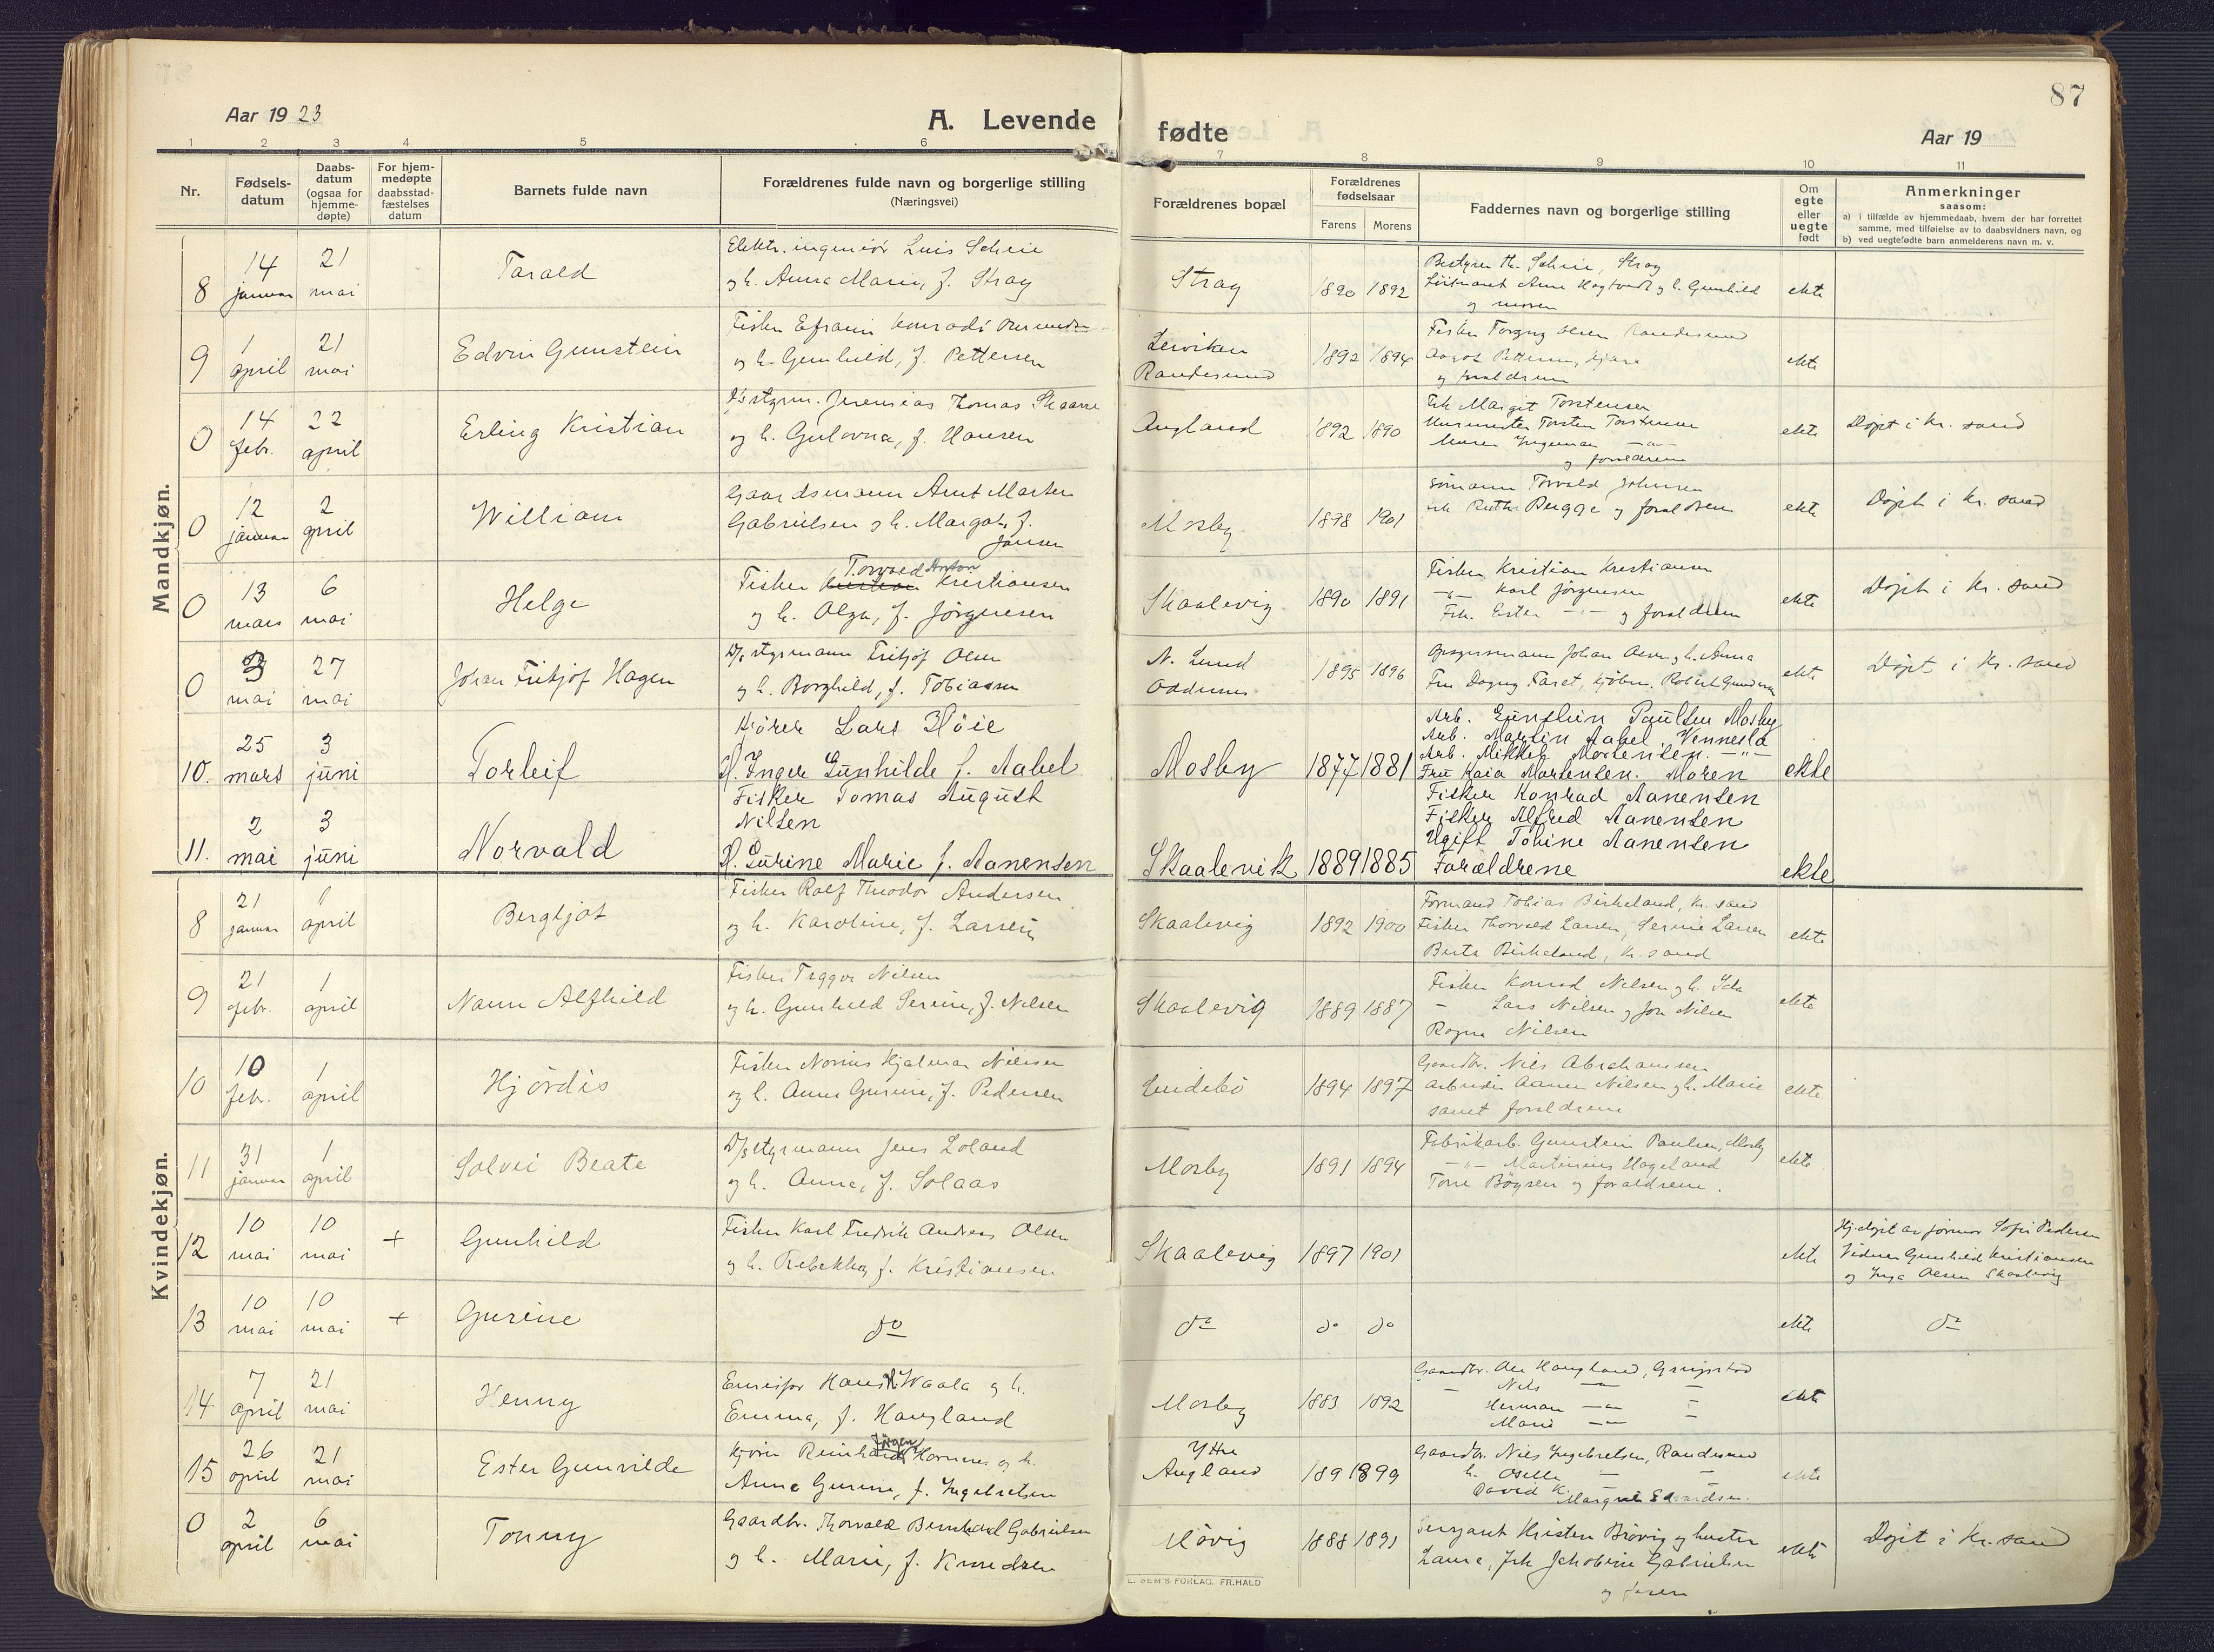 87
Aar 1923
A. Levende fødte
Aar 19
1 2 3 4 5 6 7 8 9 10 11
Nr.
Fødsels-
datum
Daabs-
datum
(ogsaa for
hjemme-
døpte)
For hjem-
medøpte
daabsstad-
fæstelses
datum
Barnets fulde navn
Forældrenes fulde navn og borgerlige stilling
(Næringsvei)
Forældrenes bopæl
Forældrenes
fødselsaar
Farens Morens
Faddernes navn og borgerlige stilling
Om
egte
eller
uegte
født
Anmerkninger
saasom:
a) i tilfælde av hjemmedaab, hvem der har forrettet
samme, med tilføielse av to daabsvidners navn, og
b) ved uegtefødte barn anmelderens navn m. v.
Mandkjøn.
8 14 januar 21 mai Tarald
Elektr. ingeniør Luis Scheie
og h. Anna Marie, f. Stray
Stray 1890 1892
Bestyrer Th. Scheie, Stray
og h. Gunhild
og moren
ekte
9 1 april 21 mai Edvin Gunstein
Fisker Efraim Konradi
og h. Gunhild, f. Pettersen
Randesund 1892 1894
Fisker Olsen, Randesund
Pettersen,
og forældrene
ekte
0 14 febr. 22 april Erling Kristian
Jeremias Thomas Skaarre
og h. Gulovna, f. Hansen
Augland 1892 1890
Frk Margit Torstensen
Murmester Torsten Torstensen
Maren Ingeman —"—
og forældrene
ekte
Døpt i Kr. sand
0 12 januar 2 april William
Gaardsmann Arnt Marten
Gabrielsen og h. Margot, f.
Jansen
Mosby 1898 1901
Sømann Torvald Johnsen
frk Ruth og forældrene
ekte
Døpt i Kr. sand
0 13 mars 6 mai Helge
Torvald Anton
Fisker Kristiansen
og h. Olga, f. Jørgensen
Skaalevig 1890 1891
Fisker Kristian Kristiansen
—"— Karl Jørgensen
Frk. Ester —"— og forældrene
ekte
Døpt i Kr. sand
0 3 mai 27 mai Johan Fritjof Hagen
D/s styrmann Fritjof Olsen
og h. Borghild, f. Tobiassen
N. Lund
Oddernes
1895 1896
Johan Olsen og h. Anna
Fru Dagny Faret, Robert Gundersen
ekte
Døpt i Kr. sand
10. 25 mars 3 juni Torleif
Kjører Lars Høie
H. Inger Gunhilde f. Aabel
Mosby 1877 1881
Arb. Gunstein Paulsen Mosby
Arb. Martin Aabel, Vennesla
Arb. Mikkel Mortensen. —"—
Fru Kaia Mortensen. Moren
ekte
11. 2 mai 3 juni Norvald
Fisker Tomas August
Nilsen
H. Gurine Marie f. Aanensen
Skaalevik 1889 1885
Fisker Konrad Aanensen
Fisker Alfred Aanensen
Ugift Tobine Aanensen
Forældrene
ekte
Kvindekjøn.
8 21 januar 1 april Bergljot
Fisker Rolf Theodor Andersen
og h. Karoline, f. Larsen
Skaalevig 1892 1900
Formand Tobias Birkeland, Kr. sand
Fisker Thorvald Larsen, Serine Larsen
Berta Birkeland, Kr. sand
ekte
9 21 febr. 1 april Nann Alfhild
Fisker Trygve Nilsen
og h. Gunhild Serine, f. Nilsen
Skaalevig 1889 1887
Fisker Konrad Nilsen og h. Ida
— Lars Nilsen og Jon Nilsen
Ragna Nilsen
ekte
10 10 febr. 1 april Hjördis
Fisker Norius Hjalmar Nilsen
og h. Anna Gurine, f. Pedersen
Lindebö 1894 1897
Gaardbr. Nils Abrahamsen
Arbeider Aanen Nilsen og h. Marie
samt forældrene
ekte
11 31 januar 1 april Solvei Beate
D/s styrmann Jens Loland
og h. Anna, f. Solaas
Mosby 1891 1894
Fabrikarb. Gunstein Paulsen, Mosby
—"— Martinius Hageland
Tone Bøysen og forældrene.
ekte
12 10 mai 10 mai + Gunhild
Fisker Karl Fredrik Andreas Olsen
og h. Rebekka, f. Kristiansen
Skaalevig 1897 1901
ekte
Hj. døpt av jormor Sofie Pedersen
Vidner Gunhild Kristiansen
og Inga Olsen Skaalevig
13 10 mai 10 mai + Gurine
do
do do do
ekte
do
14 7 april 21 mai Henny
Hans Waala og h.
Emma, f. Haugland
Mosby 1883 1892
Gaardbr. Ole Haugland, Grupstad
— Nils —"— —
Herman —"— —
Marie —"—
ekte
15 26 april 21 mai Ester Gunvilde
Jørgen
Kjører Reinhardt Hornnes og h.
Anna Gurine, f. Ingebretsen
Ytre
Augland
1891 1899
Gaardbr. Nils Ingebretsen, Randesund
h. Oselle — —
David K. —
Margrit Edvardsen.
ekte
0 2 april 6 mai Tonny
Gaardbr. Thorvald Bernhard Gabrielsen
og h. Marie, f. Knudsen
Møvig 1888 1891
Sergeant Kristen Brövig og hustru
Laura, frk Jakobine Gabrielsen
og faren
ekte
Døpt i Kr. sand
E. SEM'S FORLAG. FR.HALD